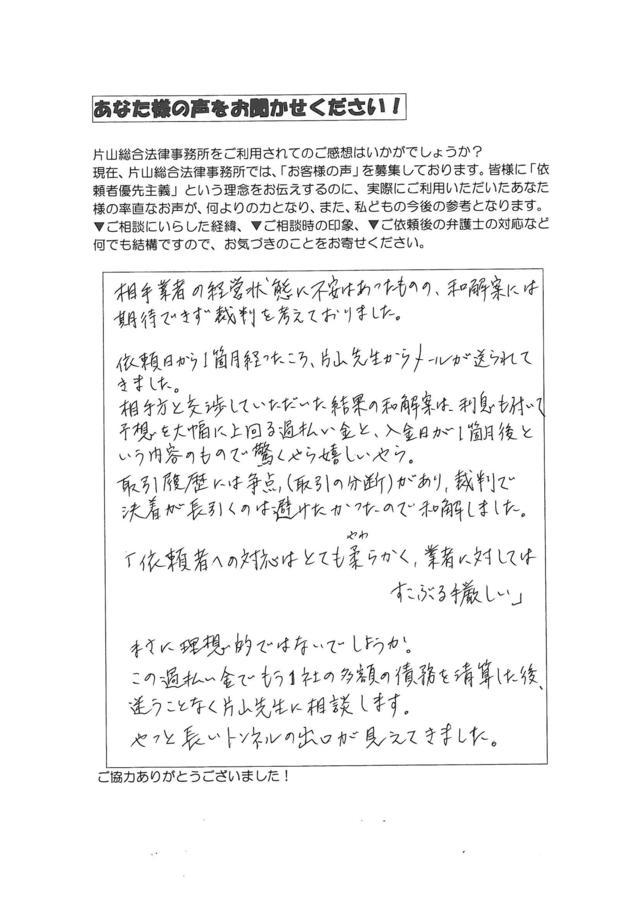 あなた様の声をお聞かせください！
片山総合法律事務所をご利用されてのご感想はいかがでしょうか？
現在、片山総合法律事務所では、「お客様の声」を募集しております。皆様に「依
頼者優先主義」という理念をお伝えするのに、実際にご利用いただいたあなた
様の率直なお声が、何よりの力となり、また、私どもの今後の参考となります。
▼ご相談にいらした経緯、▼ご相談時の印象、▼ご依頼後の弁護士の対応など
何でも結構ですので、お気づきのことをお寄せください。
相手業者の経営状態に不安はあったものの、和解案には
期待できず裁判を考えておりました。
依頼日から1箇月経ったころ、片山先生からメールが送られて
きました。
相手方と交渉していただいた結果の和解案は、利息も付いて
予想を大幅に上回る過払い金と、入金日が1箇月後と
いう内容のもので驚くやら嬉しいやら。
取引履歴には争点（取引の分断）があり、裁判で
決着が長引くのは避けたかったので和解しました。
やわ
「依頼者への対応はとても柔らかく、業者に対しては
すこぶる手厳しい」
まさに理想的ではないでしょうか。
この過払い金でもう1社の多額の債務を清算した後、
迷うことなく片山先生に相談します。
やっと長いトンネルの出口が見えてきました。
ご協力ありがとうございました！